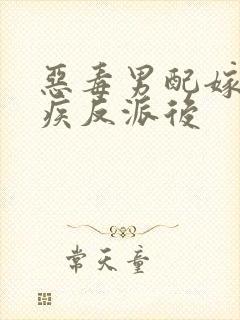 惡毒男配嫁
疾反派後
常天童